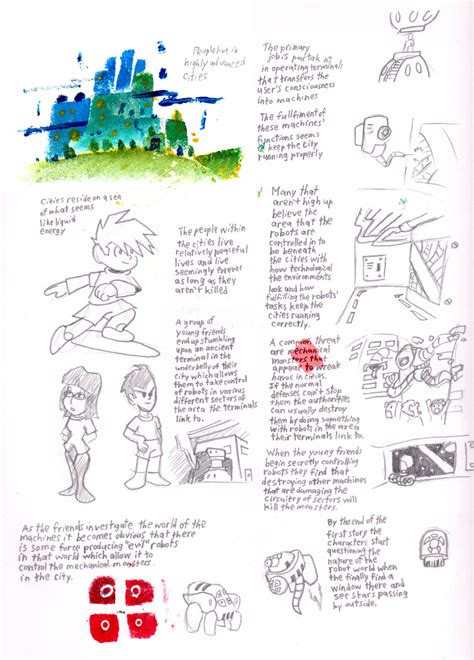 People live in
highly advanced
cities
The primary
job is partaking
in operating terminals
that transfers the
user's consciousness
into machines
The fullfiment of
these machines'
functions seems
to keep the city
running properly
Cities reside on a sea
of what seems
like liquid
energy
The people within
the cities live
relatively peaceful
lives and live
seemingly forever
as long as they
aren't killed
Many that
aren't high up
believe the
area that the
robots are
controlled in to
be beneath
the cities with
how technological
the environments
look and how
fulfilling the robots'
tasks keep the
cities running
correctly.
A group of
young friends
end up stumbling
upon an ancient
terminal in the
underbelly of their
city which allows
them to take control
of robots in various
different sectors of
the area the terminals
link to.
A common threat
are mechanical
monsters that
appear to wreak
havoc in cities.
If the normal
defenses can't stop
them the authorities
can usually destroy
them by doing something
with robots in the area
their terminals link to.
When the young friends
begin secretly controlling
robots they find that
destroying other machines
that are damaging the
circuitry of sectors will
kill the monsters.
As the friends investigate the world of the
machines it becomes obvious that there
is some force producing "evil" robots
in that world which allow it to
control the mechanical monsters
in the city.
By the end of the
first story the
characters start
questioning the
nature of the
robot world when
the finally find a
window there and
see stars passing
by outside.